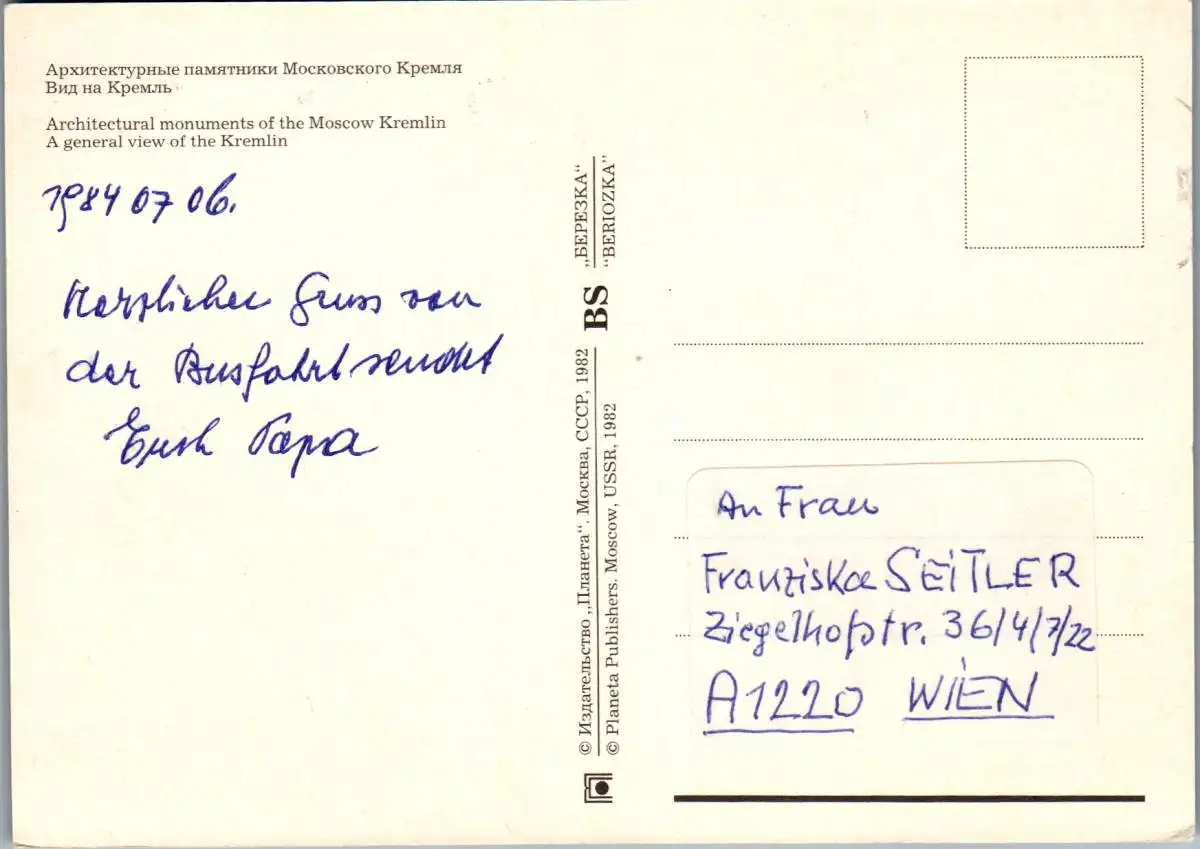 Архитектурные памятники Московского Кремля
Вид на Кремль
Architectural monuments of the Moscow Kremlin
A general view of the Kremlin
1984 07 06.
Herzlichen Gruss von
der Ausfahrt sendet
Euch Papa
„БЕРЕЗКА“
“BERIOZKA”
BS
© Издательство „Планета“. Москва, СССР, 1982
© Planeta Publishers. Moscow, USSR, 1982
An Frau
Franziska SEITLER
Ziegelhofstr. 36/4/7/22
A1220 WIEN